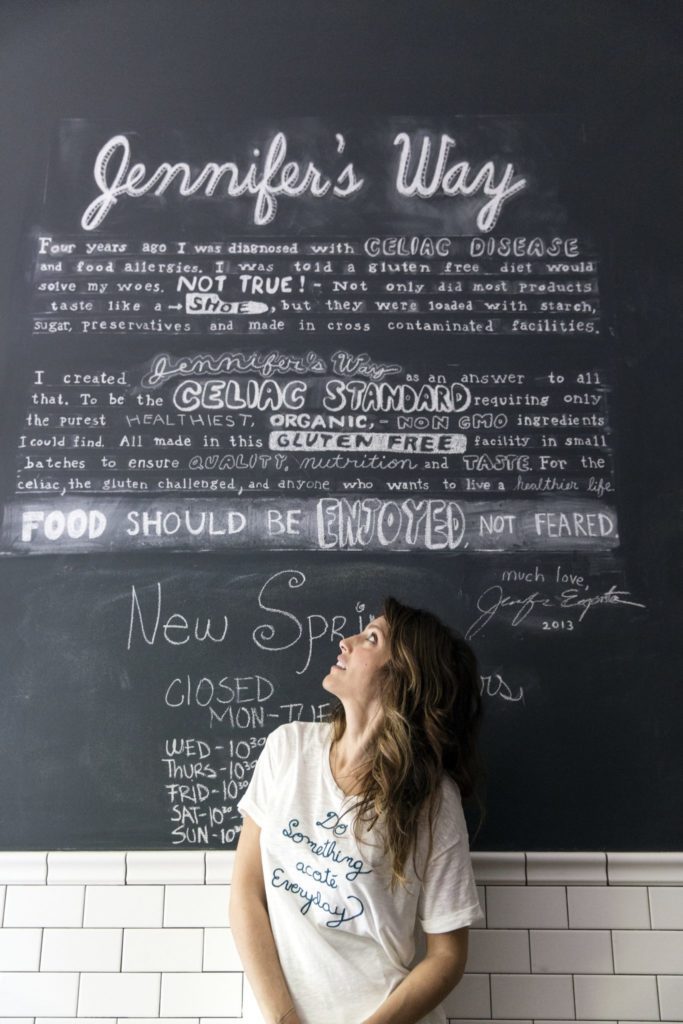 Jennifer's Way
Four years ago I was diagnosed with CELIAC DISEASE
and food allergies. I was told a gluten free diet would
solve my woes. NOT TRUE! - Not only did most products
taste like a → SHOE, but they were loaded with starch,
sugar, preservatives and made in cross contaminated facilities.
I created Jennifer's Way as an answer to all
that. To be the CELIAC STANDARD requiring only
the purest HEALTHIEST, ORGANIC, - NON GMO ingredients
I could find. All made in this GLUTEN FREE facility in small
batches to ensure QUALITY, nutrition and TASTE. For the
celiac, the gluten challenged, and anyone who wants to live a healthier life.
FOOD SHOULD BE ENJOYED, NOT FEARED.
much love,
2013
New Spri
CLOSED
MON-TUE
WED - 10³⁰
THURS - 10³⁰
FRID - 10³⁰
SAT - 10³⁰
SUN - 10
Do
Something
acoté
Everyday